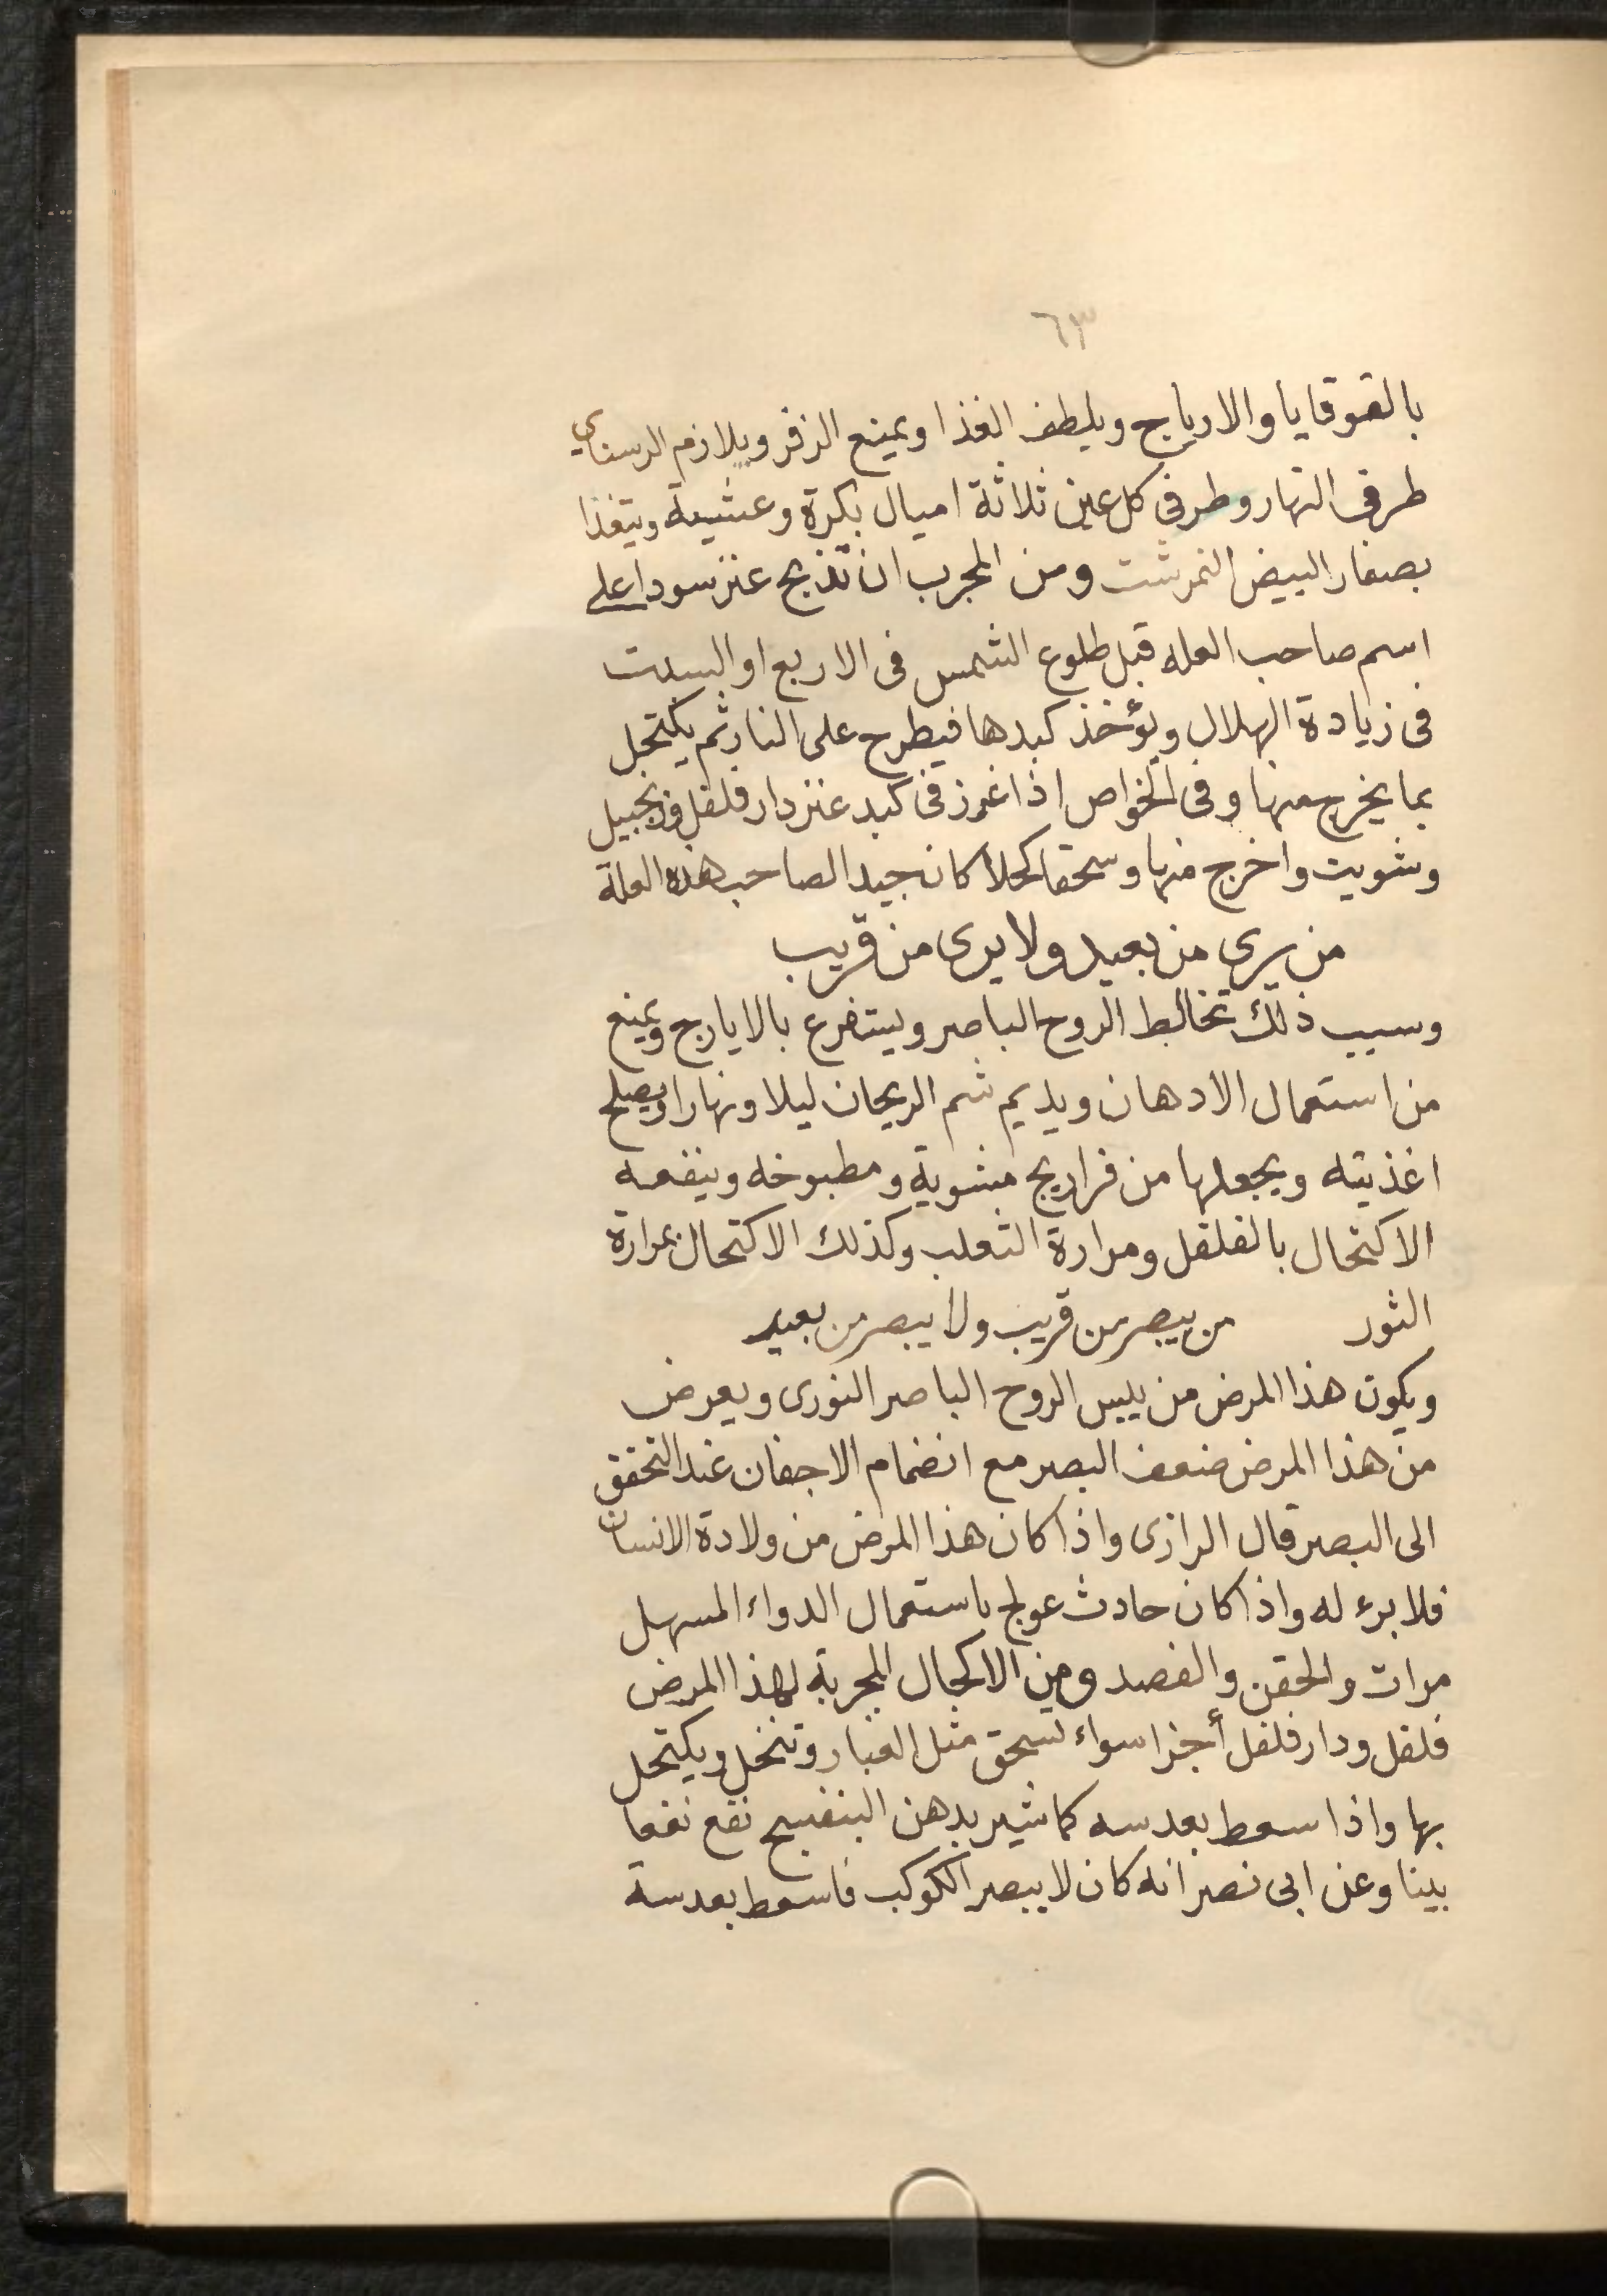 ٦٣
بالقوقايا والارياج ويلطف الغذا ويمنع الزفر ويلازم الرسناي
طرفى النهار وطرفى كل عين ثلاثة اميال بكرة وعشية ويتغذا
بصفار البيض النمرشت ومن المجرب ان تذبح عنز سودا على
اسم صاحب العله قبل طلوع الشمس فى الاربع او السبت
فى زيادة الهلال ويؤخذ كبدها فيطرح على النار ثم يكتحل
بما يخرج منها وفى الخواص اذا غرز فى كبد عنز دار فلفل وزنجبيل
وشويت واخرج منها وسحقا كحلا كان جيد الصاحب هذه العلة
من يرى من بعيد ولا يرى من قريب
وسبب ذلك تخالط الروح الباصر ويستفرع بالايارج ويمنع
من استعمال الادهان ويديم شم الريحان ليلا ونهارا ويصلح
اغذيته ويجعلها من فراريج مشوية ومطبوخه وينفعه
الاكتحال بالفلفل ومرارة الثعلب وكذلك الاكتحال بمرارة
الثور من يبصر من قريب ولا يبصر من بعيد
ويكون هذا المرض من يبس الروح الباصر النورى ويعرض
من هذا المرض ضعف البصر مع انضمام الاجفان عند التحقق
الى البصر قال الرازى واذا كان هذا المرض من ولادة الانسان
فلا برء له واذا كان حادث عولج باستعمال الدواء المسهل
مرات والحقن والفصد ومن الاكحال المجربة لهذا المرض
فلفل ودار فلفل أجزا سواء تسحق مثل الغبار وتنخل ويكتحل
بها واذا سعط بعدسه كما شير بدهن البنفسج نفع نفعا
بينا وعن ابى نصر انه كان لا يبصر الكوكب فاسعط بعدسة